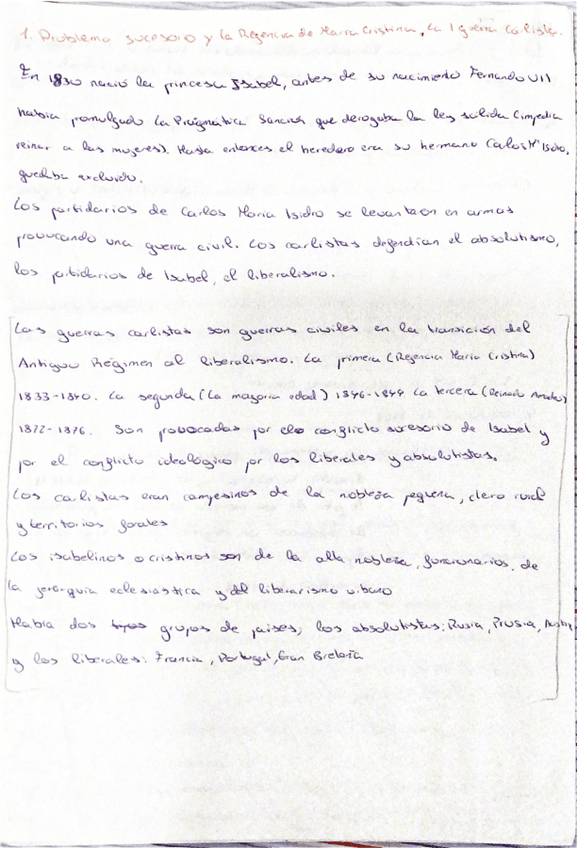 1. Problema sucesorio y la Regencia de Maria Cristina, La I guerra Carlista.
En 1830 nació la princesa Isabel, antes de su nacimiento Fernando VII
habia promulgado la Pragmática Sanción que derogaba la ley sálida (impedia
reinar a las mujeres). Hasta entonces el heredero era su hermano Carlos Mª Isidro,
quedaba excluido.
Los partidarios de Carlos Maria Isidro se levantaon en armas
provocando una guerra civil. Los carlistas defendian el absolutismo,
los partidarios de Isabel, el liberalismo.
Las guerras carlistas son guerras civiles en la transición del
Antiguo Régimen al liberalismo. La primera (Regencia Maria Cristina)
1833-1840. La segunda (La mayoria edad) 1846-1849 La tercera (Reinado Amadeo)
1872-1876. Son provocadas por el conflicto sucesorio de Isabel y
por el conflicto ideologico por los liberales y absolutistas.
Los carlistas eran campesinos de la nobleza pequeña, clero rural
y territorios forales
Los isabelinos o cristinos son de la alta nobleza, funcionarios, de
la jerarquia eclesiastica y del liberarismo urbano
Habia dos grupos de paises, los absolutistas: Rusia, Prusia, Austria
y los liberales: Francia, Portugal, Gran Bretaña